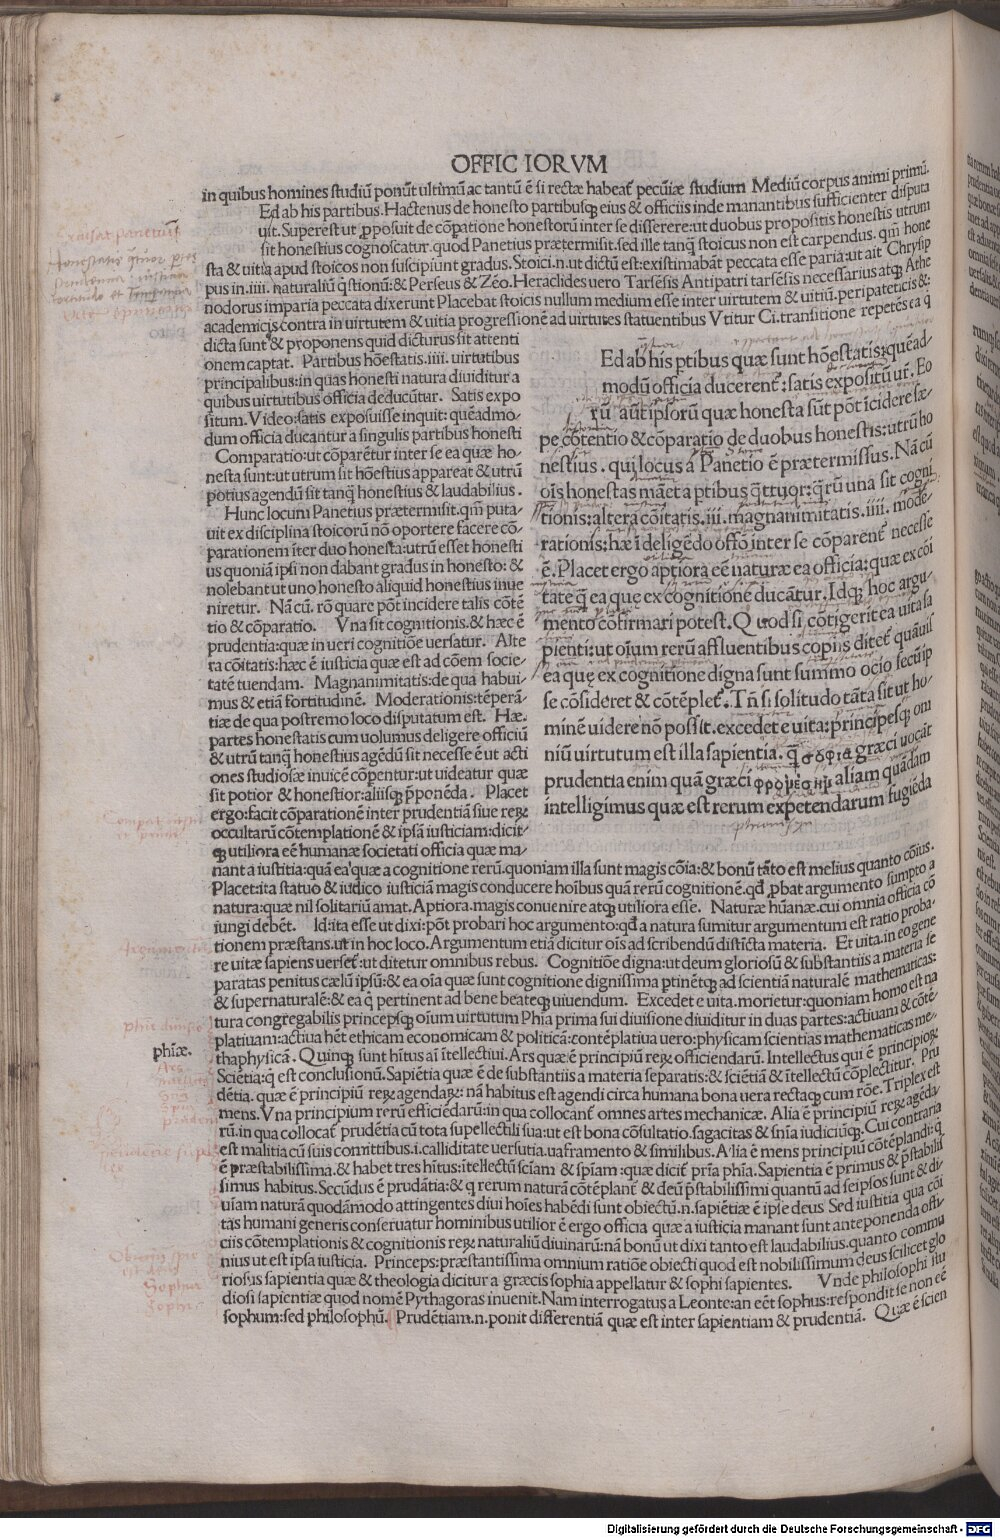 OFFICIORVM
in quibus homines studiū ponūt ultimū ac tantū ē si rectæ habeat̄ pecūiæ studium Mediū corpus animi primū.
Ed ab his partibus. Hactenus de honesto partibusq̨ eius & officiis inde manantibus sufficienter disputa
uit. Superest ut p̱posuit de cōpatione honestorū inter se disserere: ut duobus propositis honestis utrum
sit honestius cognoscatur. quod Panetius prætermisit. sed ille tanq̄ stoicus non est carpendus. qm̄ hone
sta & uitia apud stoicos non suscipiunt gradus. Stoici. n. ut dictū est: existimabāt peccata esse paria: ut ait Chrysip
pus in. iiii. naturaliū q̄stionū: & Perseus & Zēo. Heraclides uero Tarsēsis Antipatri tarsēsis necessarius atq̨ Athe
nodorus imparia peccata dixerunt Placebat stoicis nullum medium esse inter uirtutem & uitiū. peripateticis &
academicis contra in uirtutem & uitia progressionē ad uirtutes statuentibus Vtitur Ci. transitione repetēs ea q̄
dicta sunt & proponens quid dicturus sit attenti
onem captat. Partibus hōestatis. iiii. uirtutibus
principalibus: in quas honesti natura diuiditur a
quibus uirtutibus officia deducūtur. Satis expo
situm. Video: satis exposuisse inquit: quēadmo/
dum officia ducantur a singulis partibus honesti
Comparatio: ut cōparētur inter se ea quæ ho/
nesta sunt: ut utrum sit hōestius appareat & utrū
potius agendū sit tanq̄ honestius & laudabilius.
Hunc locum Panetius prætermisit. qm̄ puta/
uit ex disciplina stoicorū nō oportere facere cō/
parationem īter duo honesta: utrū esset honesti
us quoniā ipsi non dabant gradus in honesto: &
nolebant ut uno honesto aliquid honestius inue
niretur. Nā cū. rō quare pōt incidere talis cōtē
tio & cōparatio. Vna sit cognitionis. & hæc ē
prudentia: quæ in ueri cognitiōe uersatur. Alte
ra cōitatis: hæc ē iusticia quæ est ad cōem socie/
tatē tuendam. Magnanimitatis: de qua habui/
mus & etiā fortitudinē. Moderationis: tēperā/
tiæ de qua postremo loco disputatum est. Hæ.
partes honestatis cum uolumus deligere officiū
& utrū tanq̄ honestius agēdū sit necesse ē ut acti
ones studiosæ inuicē cōpentur: ut uideatur quæ
sit potior & honestior: aliisq̨ p̄ponēda. Placet
ergo: facit cōparationē inter prudentiā siue reꝝ
occultarū cōtemplationē & ipsā iusticiam: dicit/
q̨ utiliora eē humanæ societati officia quæ ma/
Ed ab his ptibus quæ sunt hōestatis: quēad/
modū officia ducerent̄: satis expositū ut̄. Eo
rū aūt ipsorū quæ honesta sūt pōt īcidere sæ/
pe cōtentio & cōparatio de duobus honestis: utrū ho
nestius. qui locus a Panetio ē prætermissus. Nā cū
oīs honestas māet a ptibus q̄ttuor: q̄rū una sit cogni
tionis: altera cōitatis. iii. magnanimitatis. iiii. mode/
rationis: hæ ī deligēdo offō inter se cōparent̄ necesse
ē. Placet ergo aptiora eē naturæ ea officia: quæ ex cōi
tate q̄ ea que ex cognitione ducātur. Idq̨ hoc argu/
mento cōfirmari potest. Quod si cōtigerit ea uita sa
pienti: ut oīum rerū affluentibus copiis ditet̄ quāuis
ea quę ex cognitione digna sunt summo ocio secūip
se cōsideret & cōtēplet̄. Tn̄ si solitudo tāta sit ut ho/
minē uidere nō possit. excedet e uita: principesq̨ om
niū uirtutum est illa sapientia. q̄ σοφια græci uocāt
prudentia enim quā græci φρονησιν aliam quādam
intelligimus quæ est rerum expetendarum fugiēda
nant a iustitia: quā ea quæ a cognitione rerū. quoniam illa sunt magis cōia: & bonū tāto est melius quanto cōius.
Placet: ita statuo & iudico iusticiā magis conducere hoibus quā rerū cognitionē. qd̄ p̱bat argumento sumpto a
natura: quæ nil solitariū amat. Aptiora. magis conuenire atq̨ utiliora esse. Naturæ hūanæ. cui omnia officia cō
iungi debēt. Id: ita esse ut dixi: pōt probari hoc argumento: qd̄ a natura sumitur argumentum est ratio proba/
tionem præstans. ut in hoc loco. Argumentum etiā dicitur oīs ad scribendū distīcta materia. Et uita. in eo gene
re uitæ sapiens uerset̄: ut ditetur omnibus rebus. Cognitiōe digna: ut deum gloriosū & substantiis a materia se
paratas penitus cælū ipsū: & ea oīa quæ sunt cognitione dignissima ptinētq̨ ad scientiā naturalē mathematicas:
& supernaturalē: & ea q̄ pertinent ad bene beateq̨ uiuendum. Excedet e uita. morietur: quoniam homo est na
tura congregabilis princepsq̨ oīum uirtutum Phīa prima sui diuisione diuiditur in duas partes: actiuam & cōtē/
platiuam: actiua hēt ethicam economicam & politicā: contēplatiua uero: physicam scientias mathematicas me/
thaphysicā. Quinq̨ sunt hītus aī ītellectiui. Ars quæ ē principiū reꝝ officiendarū. Intellectus qui ē principioꝝ
Sciētia: q̄ est conclusionū. Sapiētia quæ ē de substantiis a materia separatis: & sciētiā & ītellectū cōplectitur. Pru
dētia. quæ ē principiū reꝝ agendaꝝ: nā habitus est agendi circa humana bona uera rectaq̨ cum rōe. Triplex est
mens. Vna principium rerū efficiēdarū: in qua collocant̄ omnes artes mechanicæ. Alia ē principiū reꝝ agēda
rū. in qua collocat̄ prudētia cū tota supellectili sua: ut est bona cōsultatio. sagacitas & snīa iudiciūq̨. Cui contraria
est malitia cū suis comitibus. i. calliditate uersutia. uaframento & similibus. Alia ē mens principiū cōtēplandi: q̄
ē præstabilissima. & habet tres hītus: ītellectū scīam & spīam: quæ dicit̄ prīa phīa. Sapientia ē primus & p̄stabilis
simus habitus. Secūdus ē prudātia: & q rerum naturā cōtēplant̄ & deū p̄stabilissimi quantū ad se ipsos sunt & di/
uiam naturā quodāmodo attingentes diui hoīes habēdi sunt obiectū. n. sapiētiæ ē ipse deus Sed iustitia qua cōi
tas humani generis conseruatur hominibus utilior ē ergo officia quæ a iusticia manant sunt anteponenda offi/
ciis cōtemplationis & cognitionis reꝝ naturaliū diuinarū: nā bonū ut dixi tanto est laudabilius. quanto commu
nius ut est ipsa iusticia. Princeps: præstantissima omnium ratiōe obiecti quod est nobilissimum deus scilicet glo
riosus sapientia quæ & theologia dicitur a græcis sophia appellatur & sophi sapientes. Vnde philosophi stu
diosi sapientiæ quod nomē Pythagoras inuenit. Nam interrogatus a Leonte: an eēt sophus: respondit se non eē
sophum: sed philosophū. Prudētiam. n. ponit differentiā quæ est inter sapientiam & prudentiā. Quæ ē scien
phīæ.
Digitalisierung gefördert durch die Deutsche Forschungsgemeinschaft - DFG